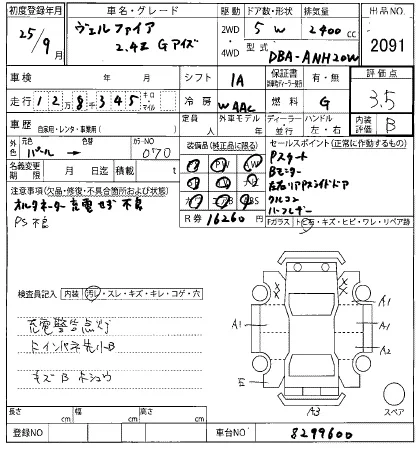 初度登録年月 車名・グレード 駆動 ドア数・形状 排気量 出品NO.
25/9月 ヴェルファイア 2WD 5 W 2400 cc
2.4Z Gアイズ 4WD 型式 DBA-ANH20W 2091
車検 年 月 シフト IA 保証書 有・無 評価点
走行 128345 キロ・マイル 冷房 WAAC 燃料 G 3.5
車歴 自家用・レンタ・事業用( ) 定員 人 外車モデル 年 ディーラー・並行 ハンドル 左・右 内装評価 B
外色 元色 パール → 色替 カラーNO 070
名義変更期限 月 日迄 積載 t
装備品(純正品に限る) セールスポイント(正常に作動するもの)
PS PW AW
ナビ
エアB ABS
Pスタート
Bモニター
左右リアPスライドドア
クルコン
ハーフレザー
注意事項(欠品・修復・不具合箇所および状態)
オルタネーター 充電せず 不良
PS不良
R券 16260 円
Fガラス トビ石・キズ・ヒビ・ワレ・リペア跡
検査員記入 内装 汚レ・スレ・キズ・キレ・コゲ・穴
充電警告点灯
キズB
A1 A1 A1 A2 E A3
スペア
長さ cm 幅 cm 高さ cm
登録NO 車台NO 8299600